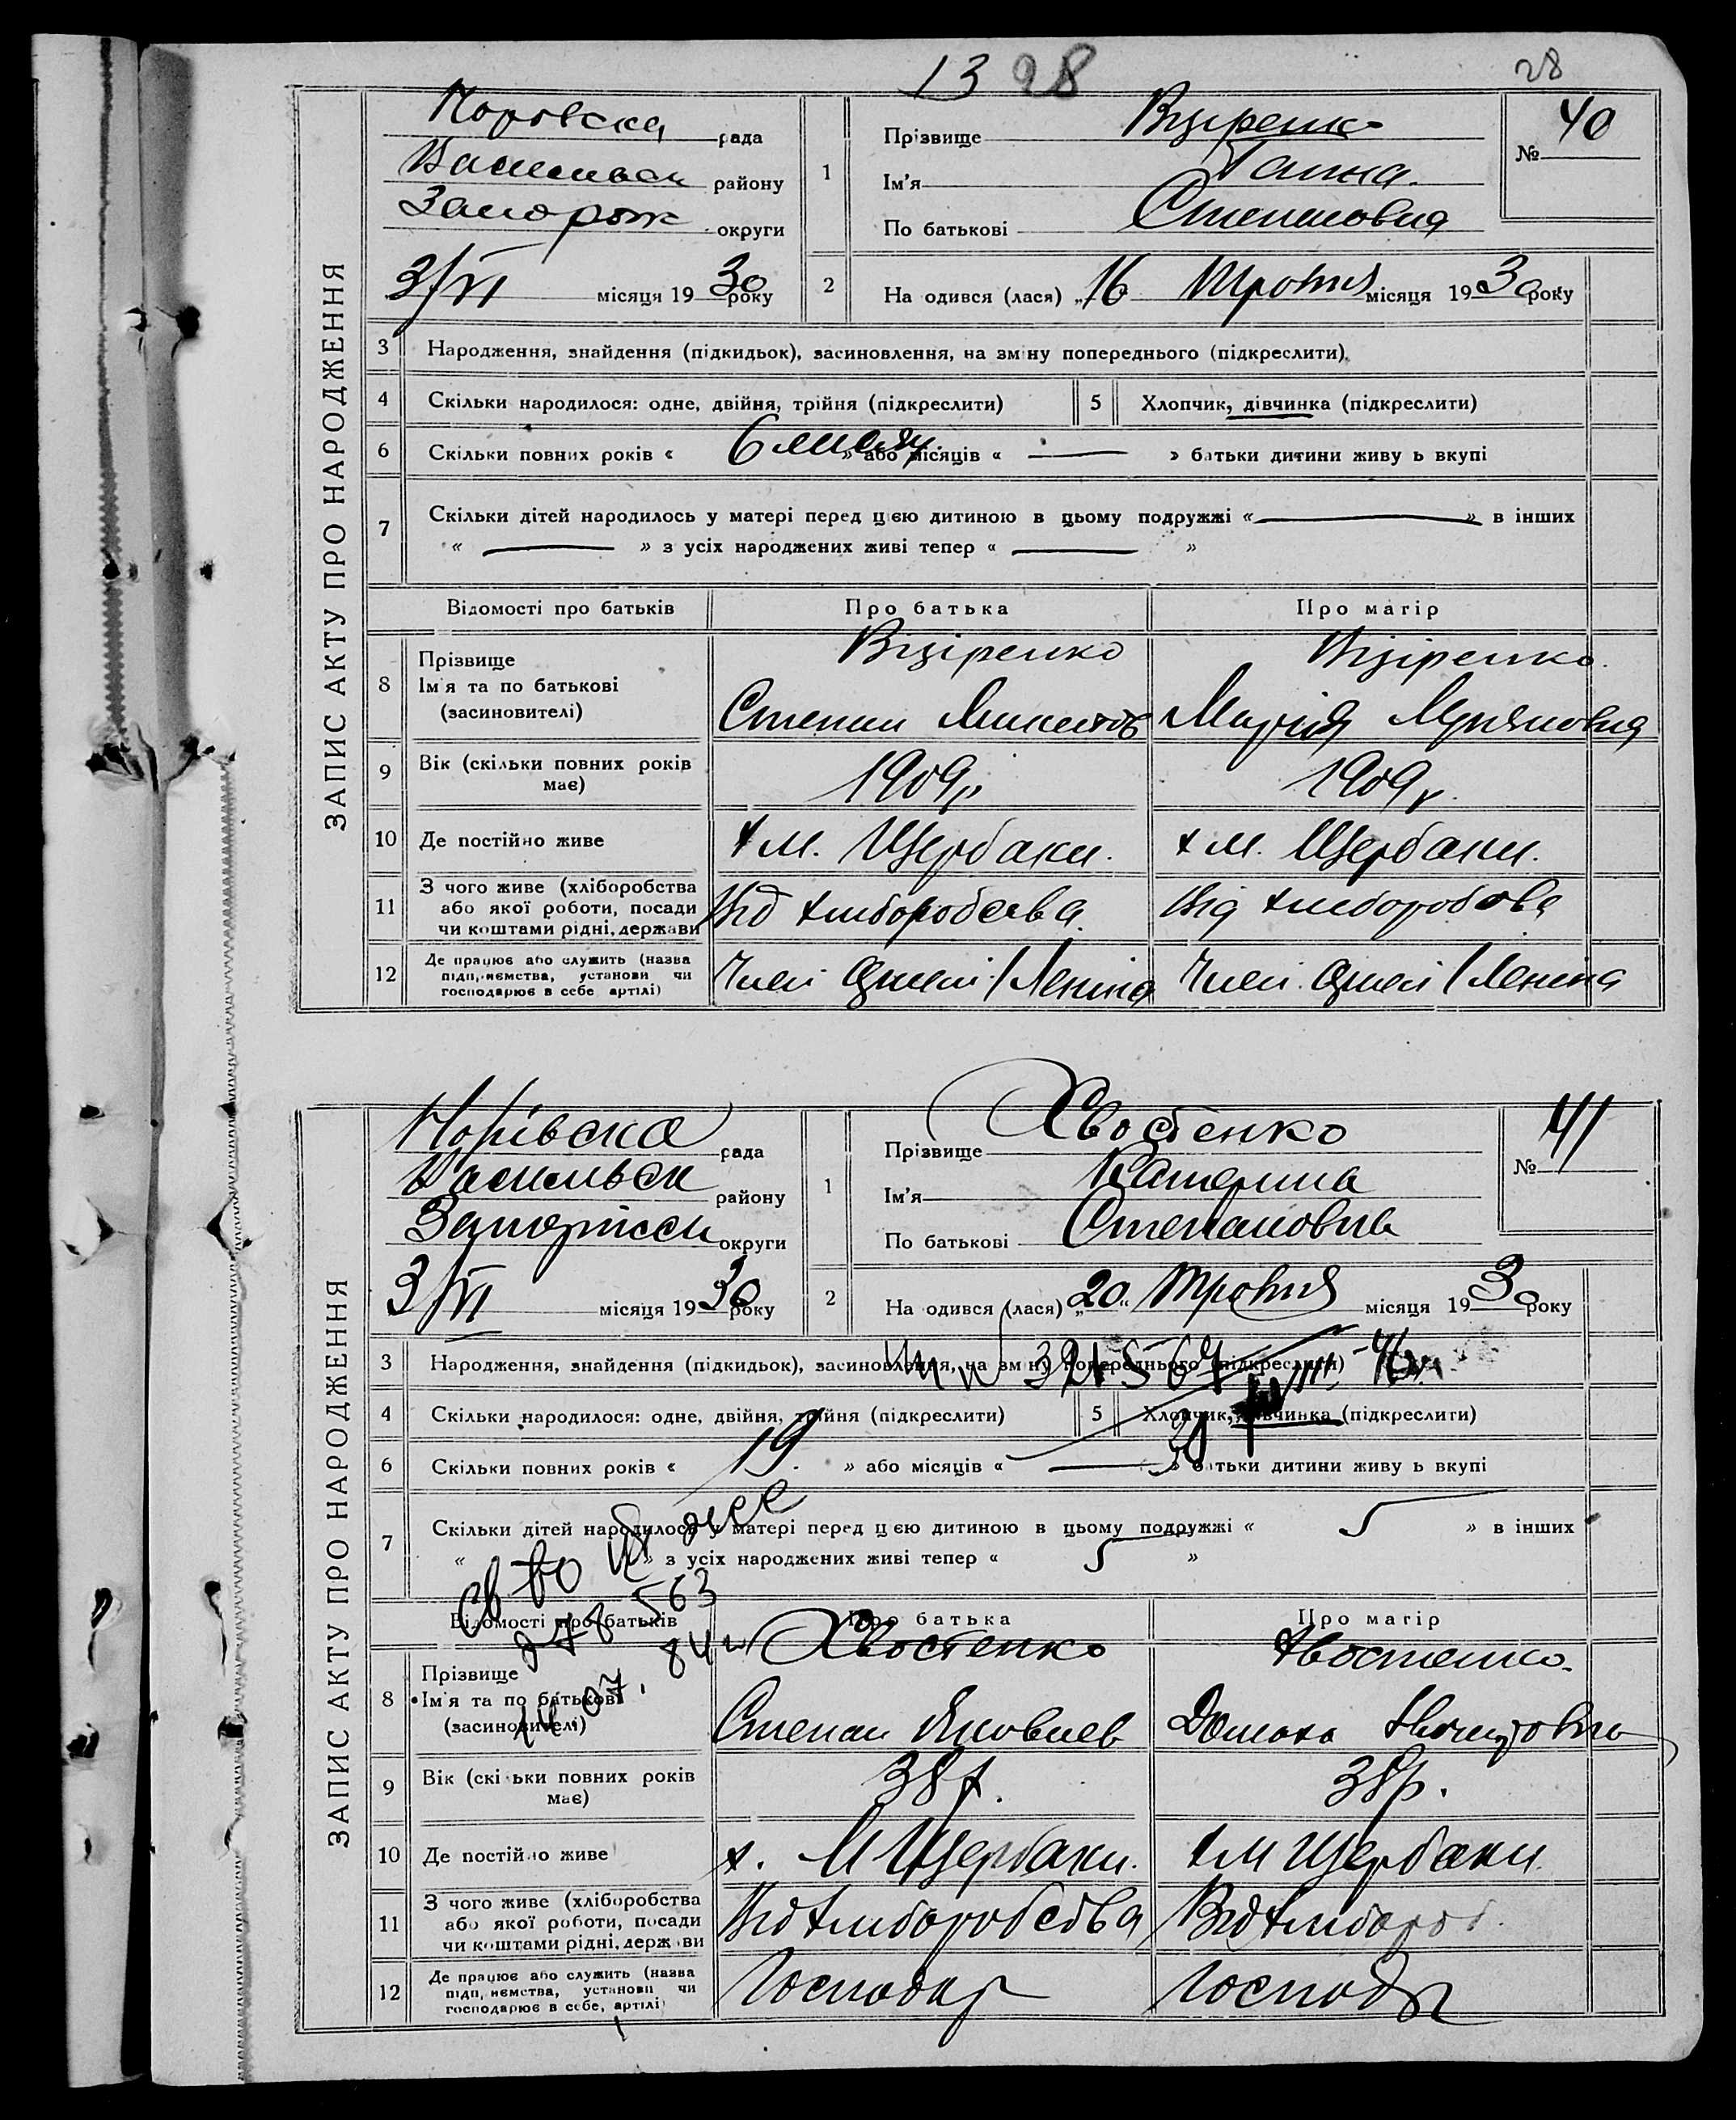 13 28
28
ЗАПИС АКТУ ПРО НАРОДЖЕННЯ
рада
району
Запорож округи
3/VI місяця 1930 року
1
Прізвище Віціренко
Ім'я Ганна.
По батькові Степановна
№ 40
2
На одився (лася) „16 Травня місяця 1930 року
3 Народження, знайдення (підкидьок), засиновлення, на зміну попереднього (підкреслити).
4 Скільки народилося: одне, двійня, трійня (підкреслити)
5 Хлопчик, дівчинка (підкреслити)
6 Скільки повних років « 6 » або місяців « — » батьки дитини живу ь вкупі
7 Скільки дітей народилось у матері перед цією дитиною в цьому подружжі « — » в інших
« — » з усіх народжених живі тепер « — »
Відомості про батьків Про батька Про матір
8 Прізвище
Ім'я та по батькові
(засиновителі)
Віціренко
Степан
Віціренко.
Марія
9 Вік (скільки повних років має)
1909р. 1909р.
10 Де постійно живе
х м. Щербаки. х м. Щербаки.
11 З чого живе (хліборобства або якої роботи, посади чи коштами рідні, держави
Від хлиборобства. Від хлиборобства
12 Де працює або служить (назва підприємства, установи чи господарює в себе артілі)
Член Артілі /Леніна Член Артілі /Леніна
ЗАПИС АКТУ ПРО НАРОДЖЕННЯ
рада
Васильвск району
округи
3/VI місяця 1930 року
1
Прізвище Хвостенко
Ім'я Катерина
По батькові Степановна
№ 41
2
На одився (лася) „20“ Травня місяця 1930 року
3 Народження, знайдення (підкидьок), засиновлення, на зміну попереднього (підкреслити)
4 Скільки народилося: одне, двійня, трійня (підкреслити)
5 Хлопчик, дівчинка (підкреслити)
6 Скільки повних років « 19. » або місяців « — » батьки дитини живу ь вкупі
7 Скільки дітей народилось у матері перед цією дитиною в цьому подружжі « 5 » в інших
« » з усіх народжених живі тепер « 5 »
св во
563
Відомості про батьків Про батька Про матір
8 Прізвище
Ім'я та по батькові
(засиновителі)
Хвостенко
Степан Яковлев
Хвостенко.
9 Вік (скі ьки повних років має)
38р. 38р.
10 Де постійно живе
х. М Щербаки. х М Щербаки.
11 З чого живе (хліборобства або якої роботи, посади чи коштами рідні, держави
Від хлиборобства Від хлибороб.
12 Де працює або служить (назва підприємства, установи чи господарює в себе, артілі)
Господар Господар